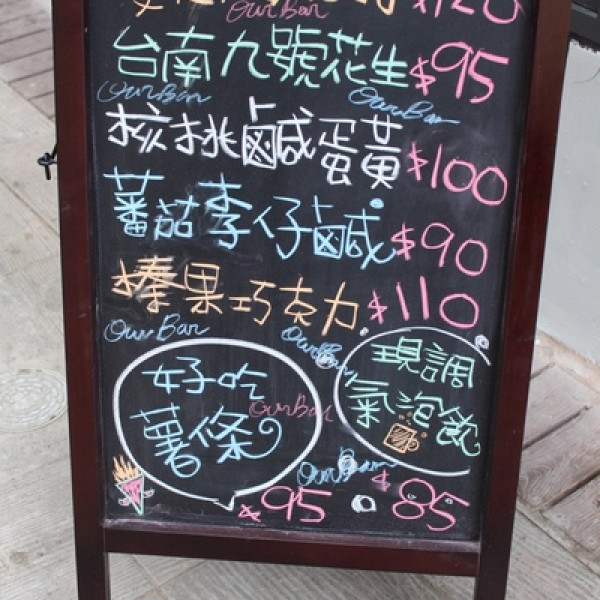 $120
Our Bar
台南九號花生 $95
Our Bar Our Bar
核桃鹹蛋黃 $100
蕃茄李仔鹹 $90
榛果巧克力 $110
Our Bar
Our Bar
好吃
薯條
Our Bar
現調
氣泡飲
Our Bar
$95
$85